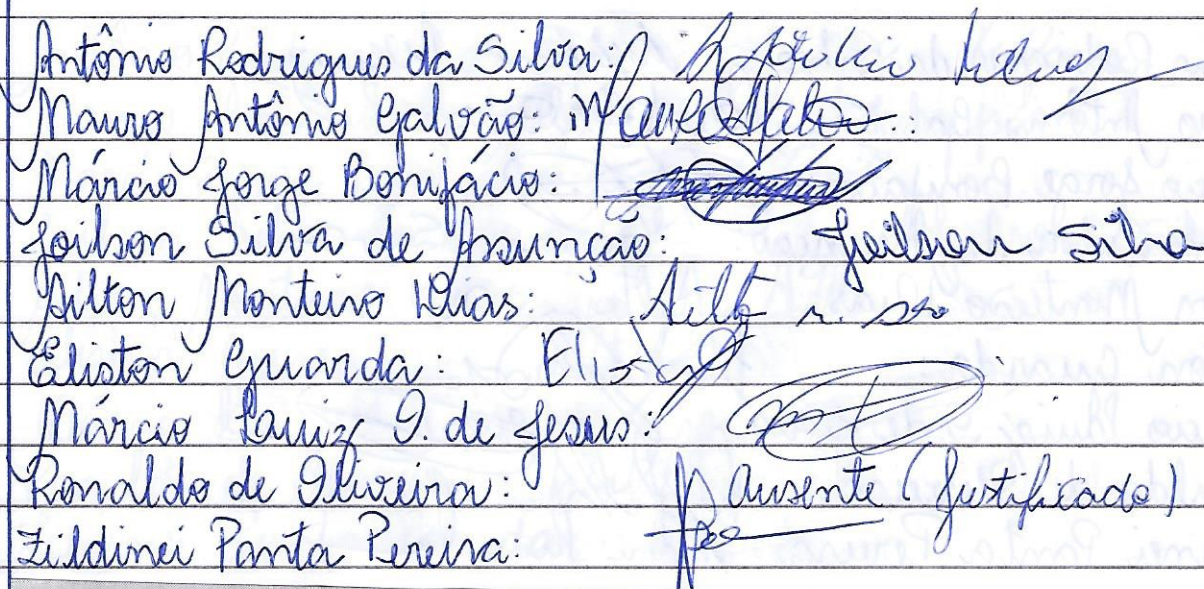 Antônio Rodrigues da Silva:
Mauro Antônio Galvão:
Márcio Jorge Bonifácio:
Joilson Silva de Assunção: Joilson Silva
Ailton Monteiro Dias:
Eliston Guarda:
Márcio Luiz O. de Jesus:
Ronaldo de Oliveira: Ausente (Justificado)
Zildinei Panta Pereira: